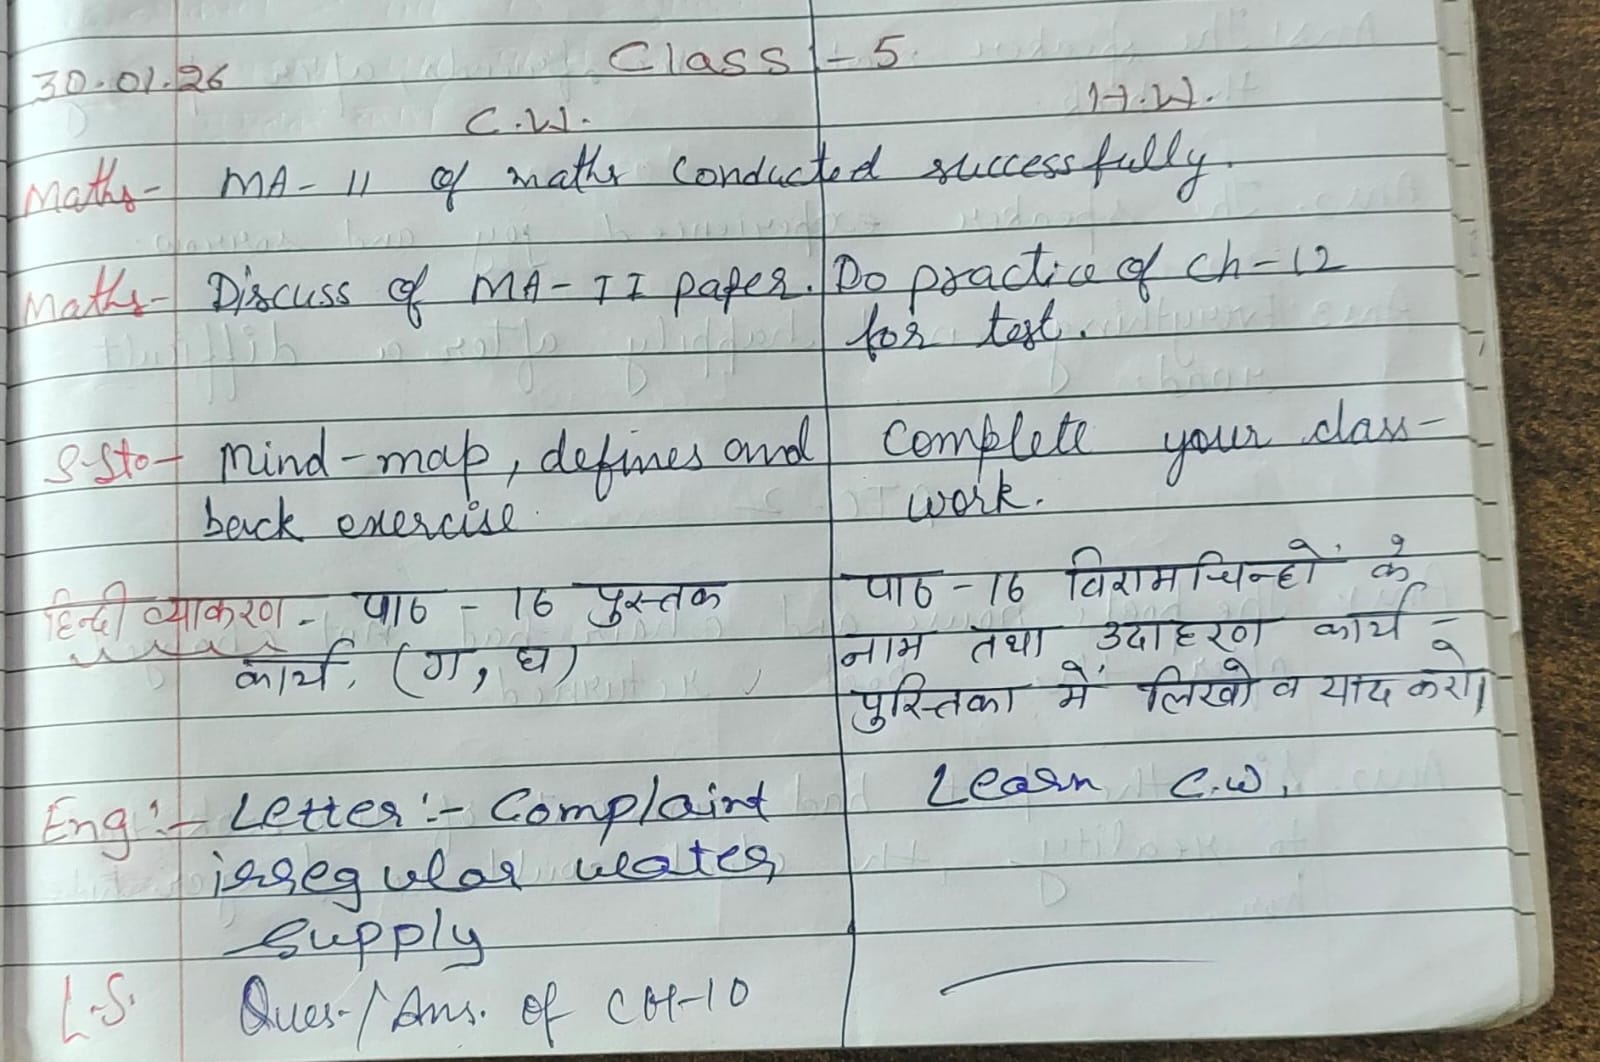 Class - 5
30.01.26
C.W.
H.W.
Maths- MA-11 of maths Conducted successfully.
Maths- Discuss of MA-II paper. Do practice of Ch-12
for test.
S.St- Mind-map, defines and Complete your class-
back exercise. work.
हिन्दी व्याकरण- पाठ - 16 पुस्तक पाठ-16 विरामचिन्हों के
कार्य. (ग, घ) नाम तथा उदाहरण कार्य-
पुस्तिका में लिखो व याद करो।
Eng:- Letter:- Complaint Learn C.W.
irregular water
supply
L.S. Ques./Ans. of CH-10